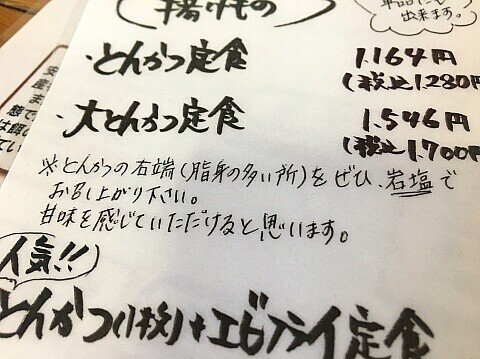 揚げもの
単品にも
出来ます。
・とんかつ定食 1.164円
(税込1.280円
・大とんかつ定食 1.546円
(税込1.700円
※とんかつの右端(脂身の多い所)をぜひ、岩塩で
お召し上がり下さい。
甘味を感じていただけると思います。
人気!!
とんかつ(1枚)+エビフライ定食